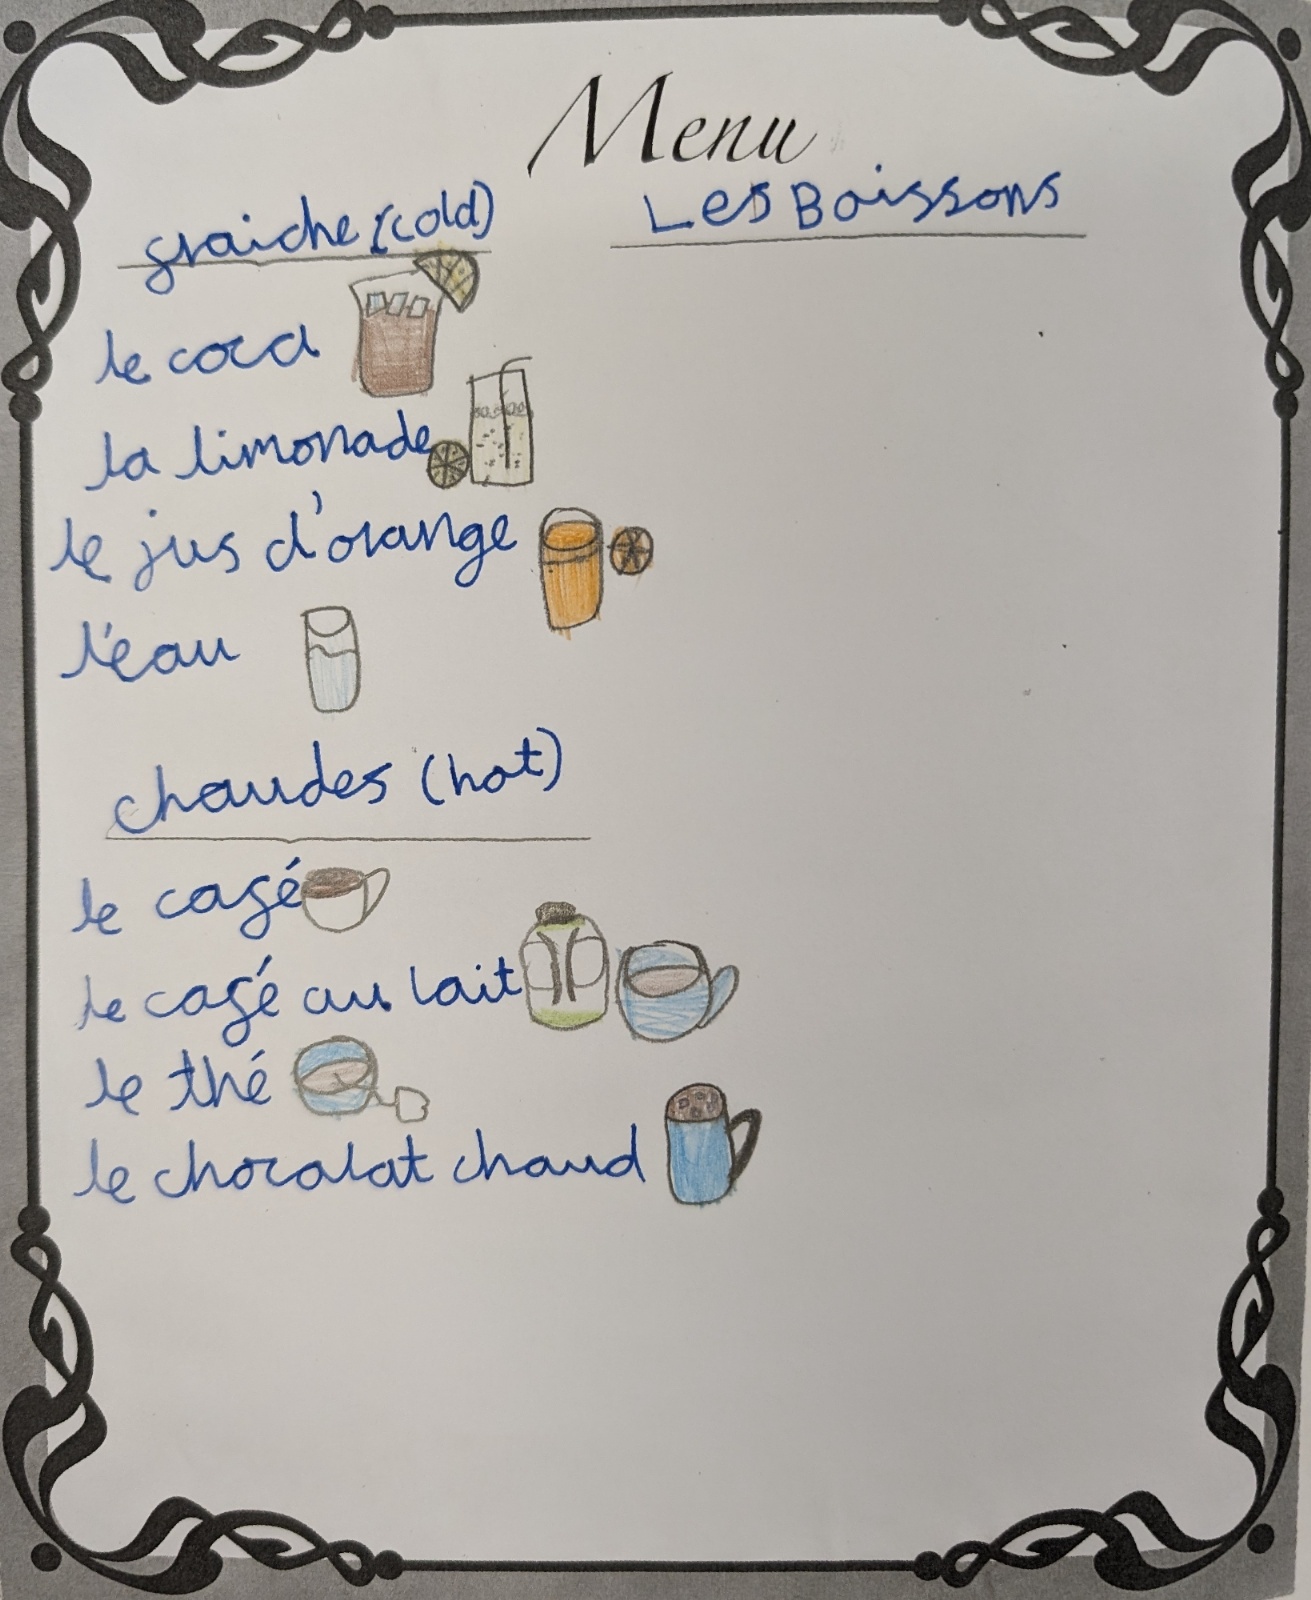 Menu
Les Boissons
fraiche (cold)
le coca
la limonade
le jus d'orange
l'eau
chaudes (hot)
le café
le café au lait
le thé
le chocolat chaud